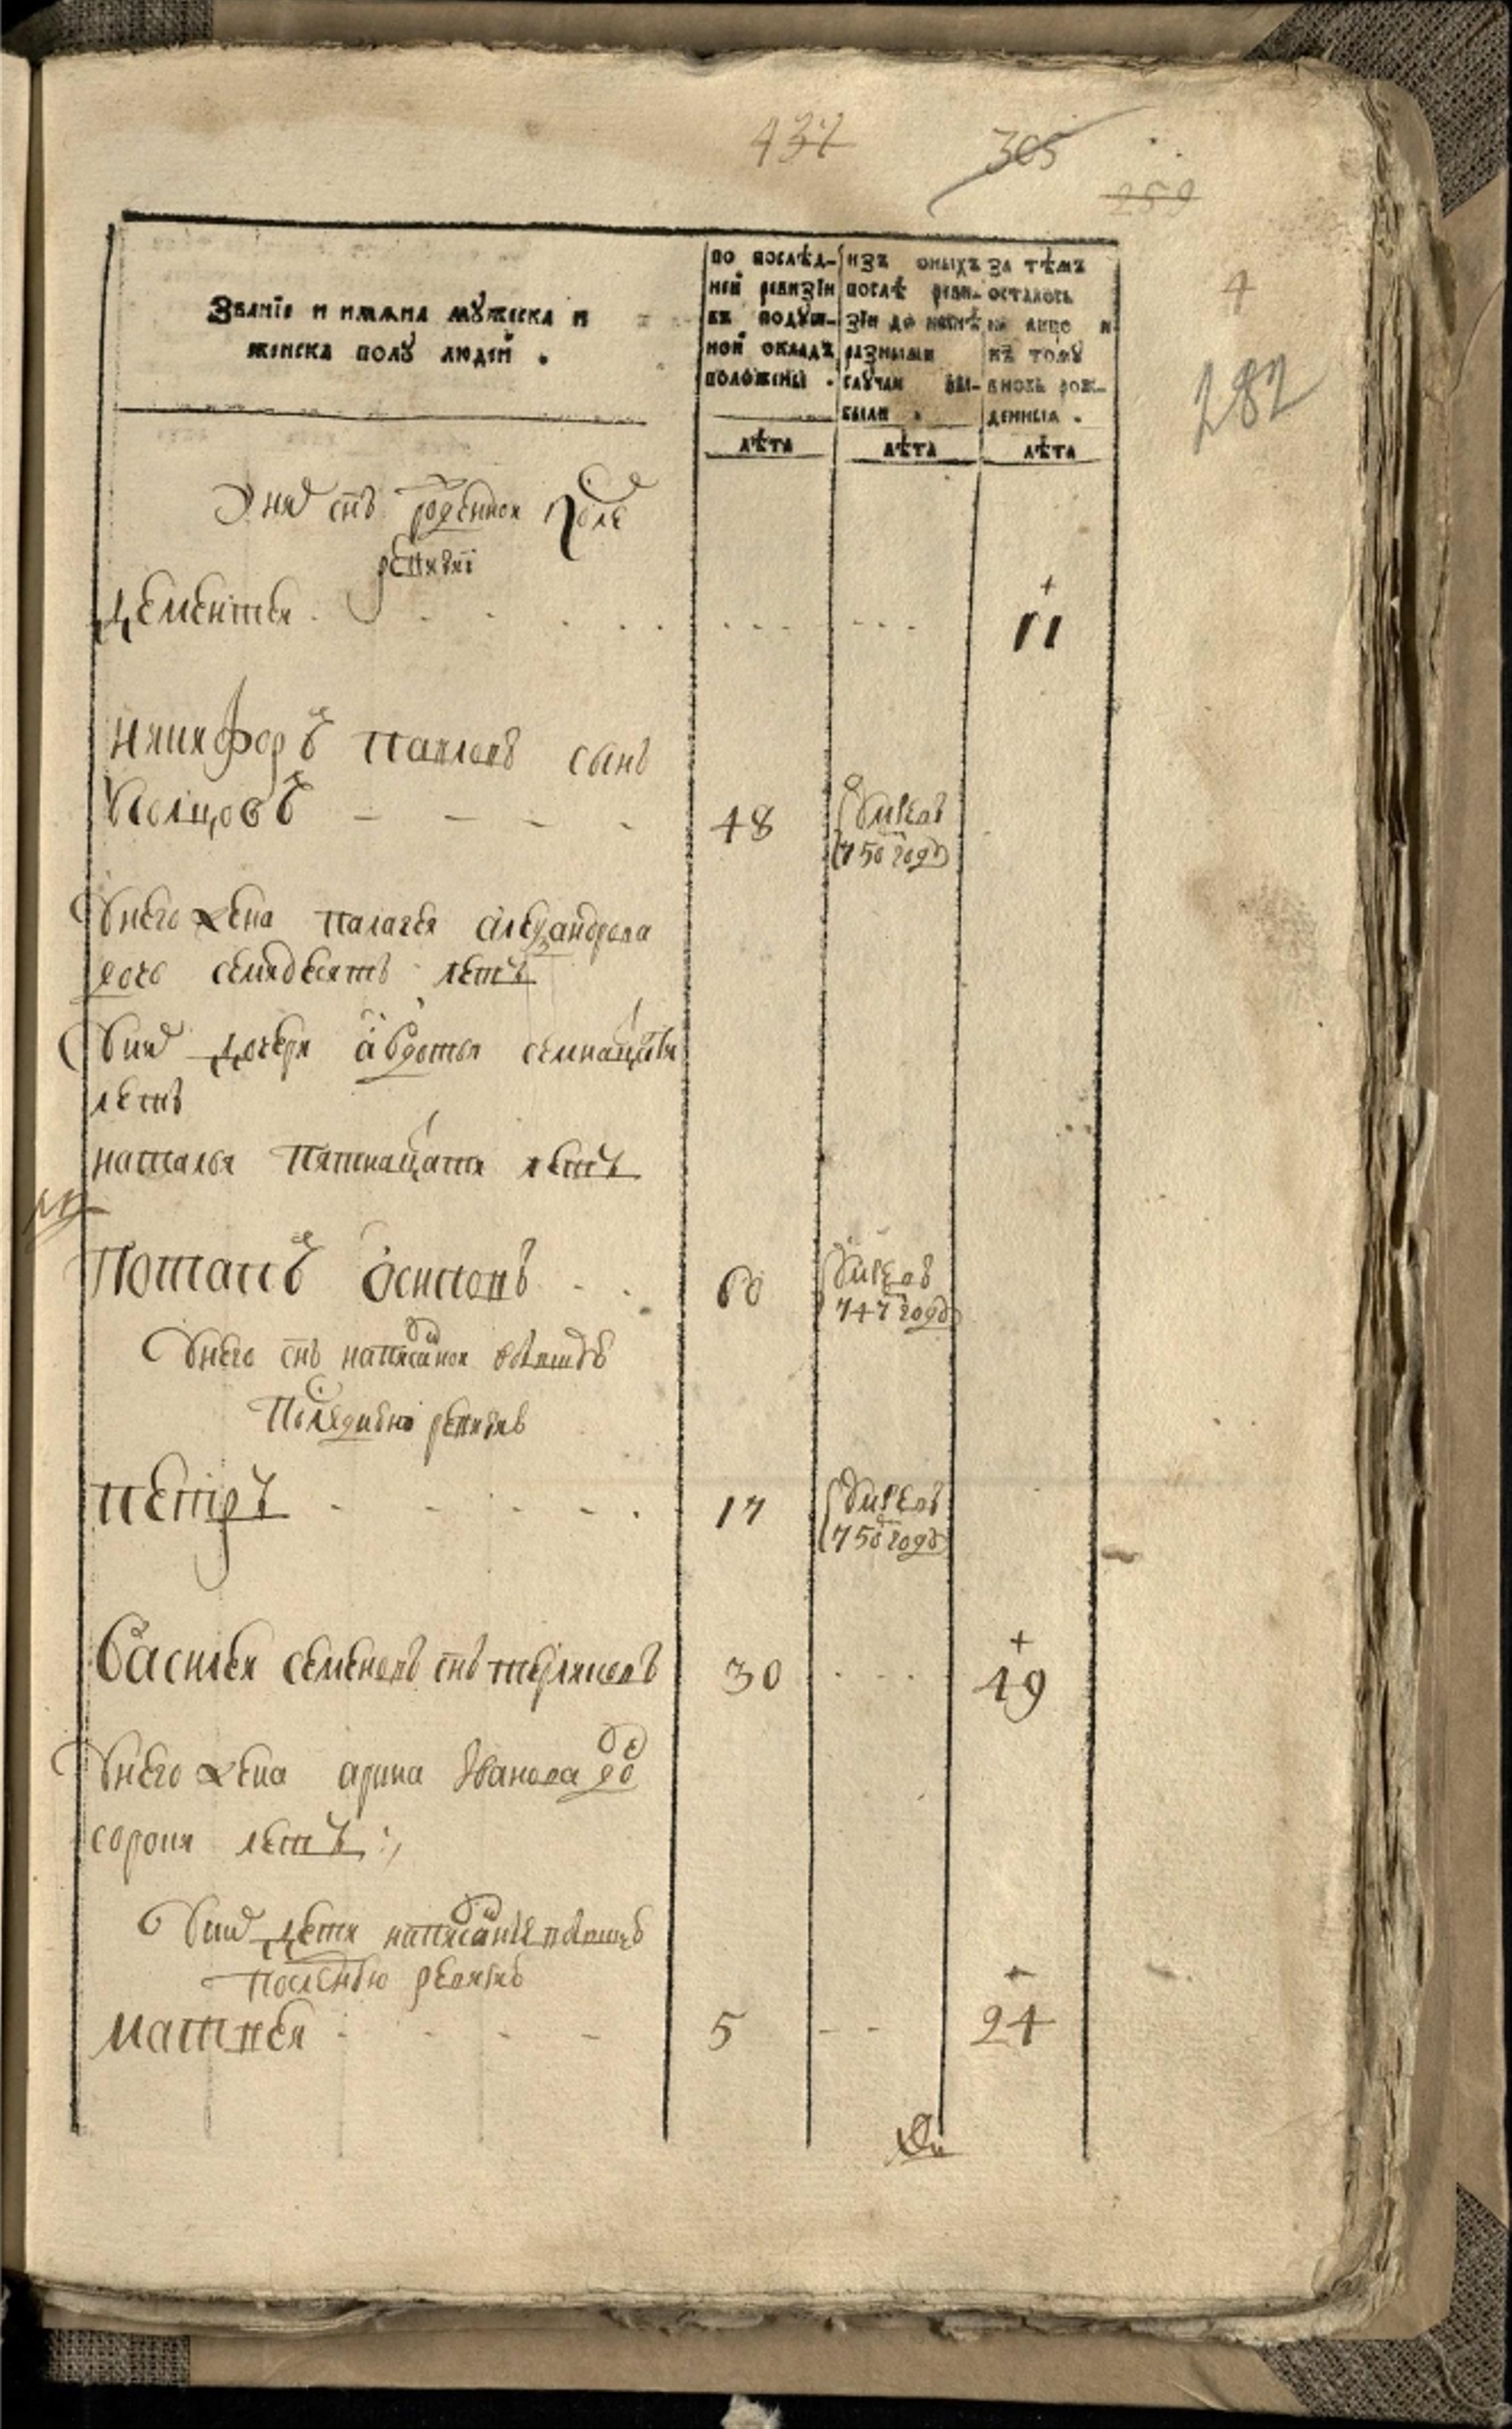 437 305
259
4
282
Званїе и имѧна мꙋжеска и
женска полꙋ людей .
по послѣд-
ней ревизїи
въ подꙋш-
ной окладъ
положены .
изъ оныхъ
послѣ реви-
зїи до нынѣ
разными
слꙋчаи вы-
были .
за тѣмъ
осталось
на лицо и
къ томꙋ
вновь рож-
денныя .
лѣта лѣта лѣта
У них снъ рожденной после
ревизиї
Дементеи 11
Никифоръ Павловъ сынъ
48 умре въ
750 году
У него жена Палагея Александрова
дочь семидесятъ летъ
У них дочери Авдотья семнацати
летъ
Наталья пятнацати летъ
Потапъ Осиповъ 60 умре въ
747 году
У него снъ написанной
последнюю ревизию
Петръ 17 умре въ
750 году
Василеи Семеновъ снъ 30 49
У него жена Арина Иванова до
сорокъ летъ
У них дети написанные
последнюю ревизию
Матвеи 5 24